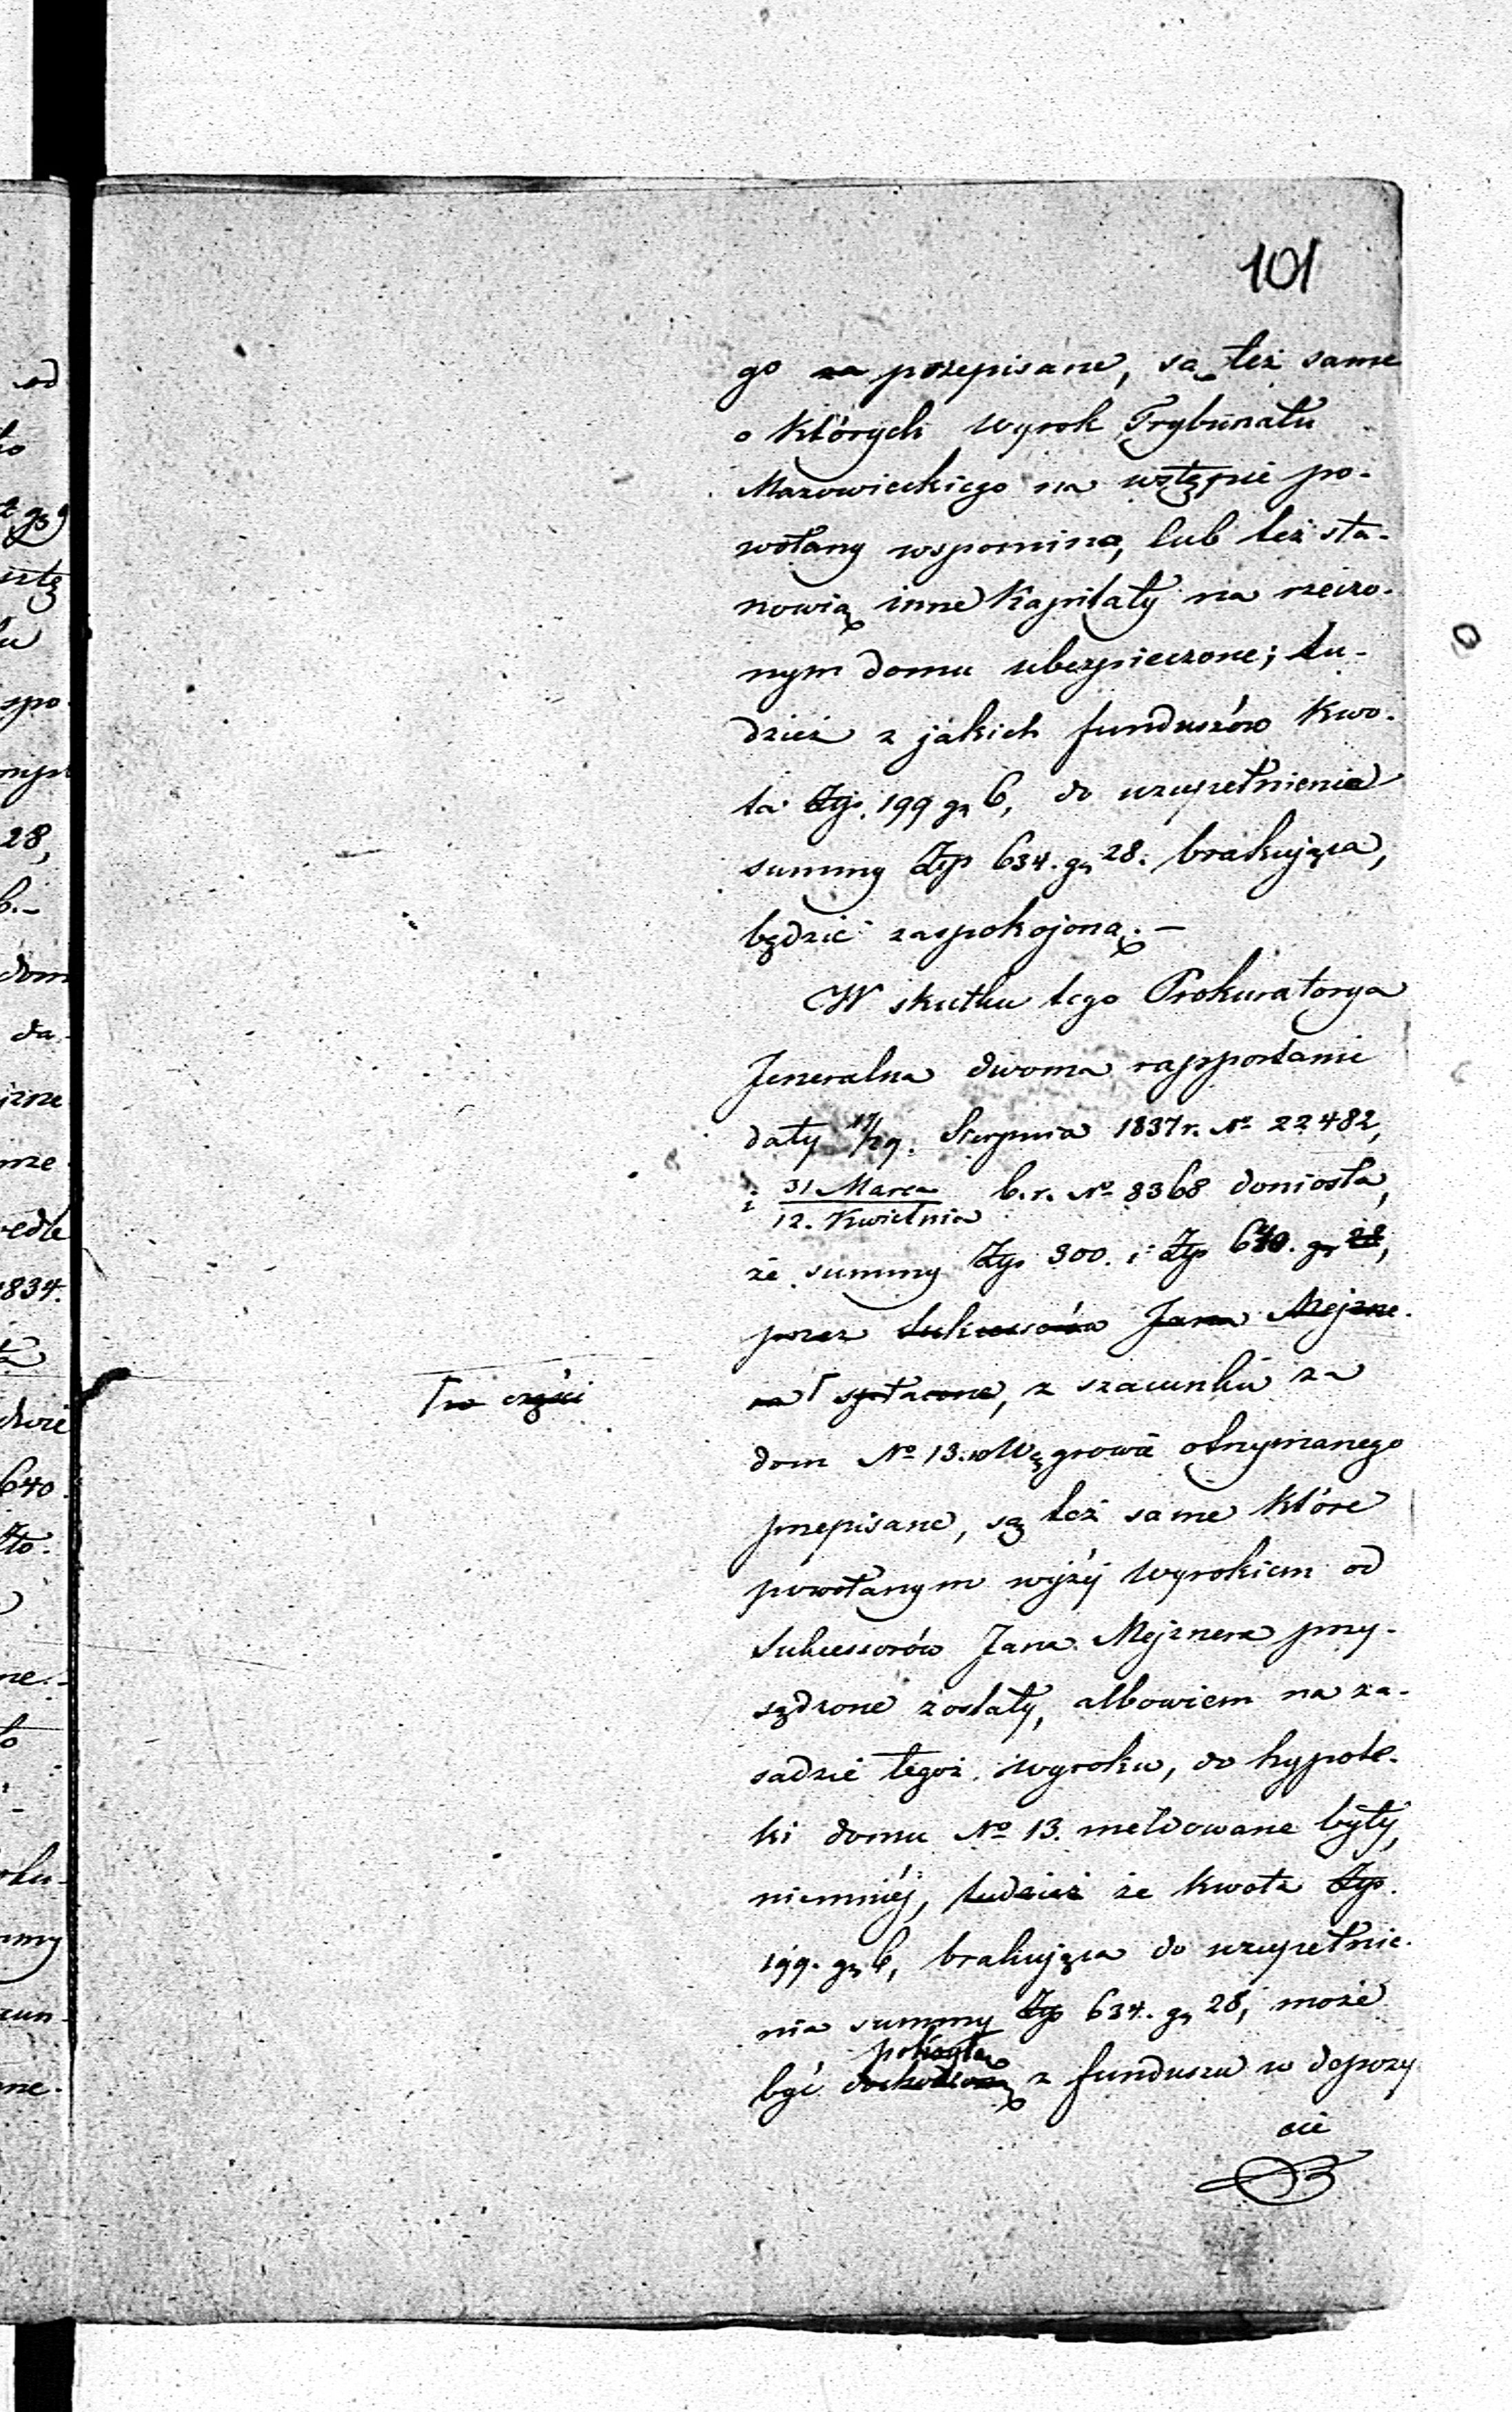 101
go na przepisane, są też same
o których wyrok Trybunału
Mazowieckiego na wstępie po-
wołany wspomina, lub też sta-
nowią inne Kapitały na rzeczo-
nym domu ubezpieczone; tu-
dzież z jakich funduszów kwo-
ta Złp. 199 gr 6, do uzupełnienia
summy Złp 634. gr 28. brakująca,
będzie zaspokojoną. –
W skutku tego Prokuratorya
Jeneralna dwoma rapportami
daty 17/29. Sierpnia 1837 r. No 22482,
i 31 Marca / 12. Kwietnia b.r. No 8368 doniosła,
że summy Złp 300. i Złp 640. gr 28,
przez Sukcessorów Jana Mejzne-
ra Γ spłacone, z szacunku za
Γ w części
dom No 13. w Węgrowie otrzymanego
przepisane, są też same które
powołanym wyżéj wyrokiem od
Sukcessorów Jana Mejznera przy-
sądzone zostały, albowiem na za-
sadzie tegoż wyroku, do hypote-
ki domu No 13. meldowane były,
niemniéj, tudzież że kwota Złp.
199. gr 6, brakująca do uzupełnie-
nia summy Złp 634. gr 28, może
być z funduszu w depozy
cie
od
28,
spo
dom
da-
1834.
640